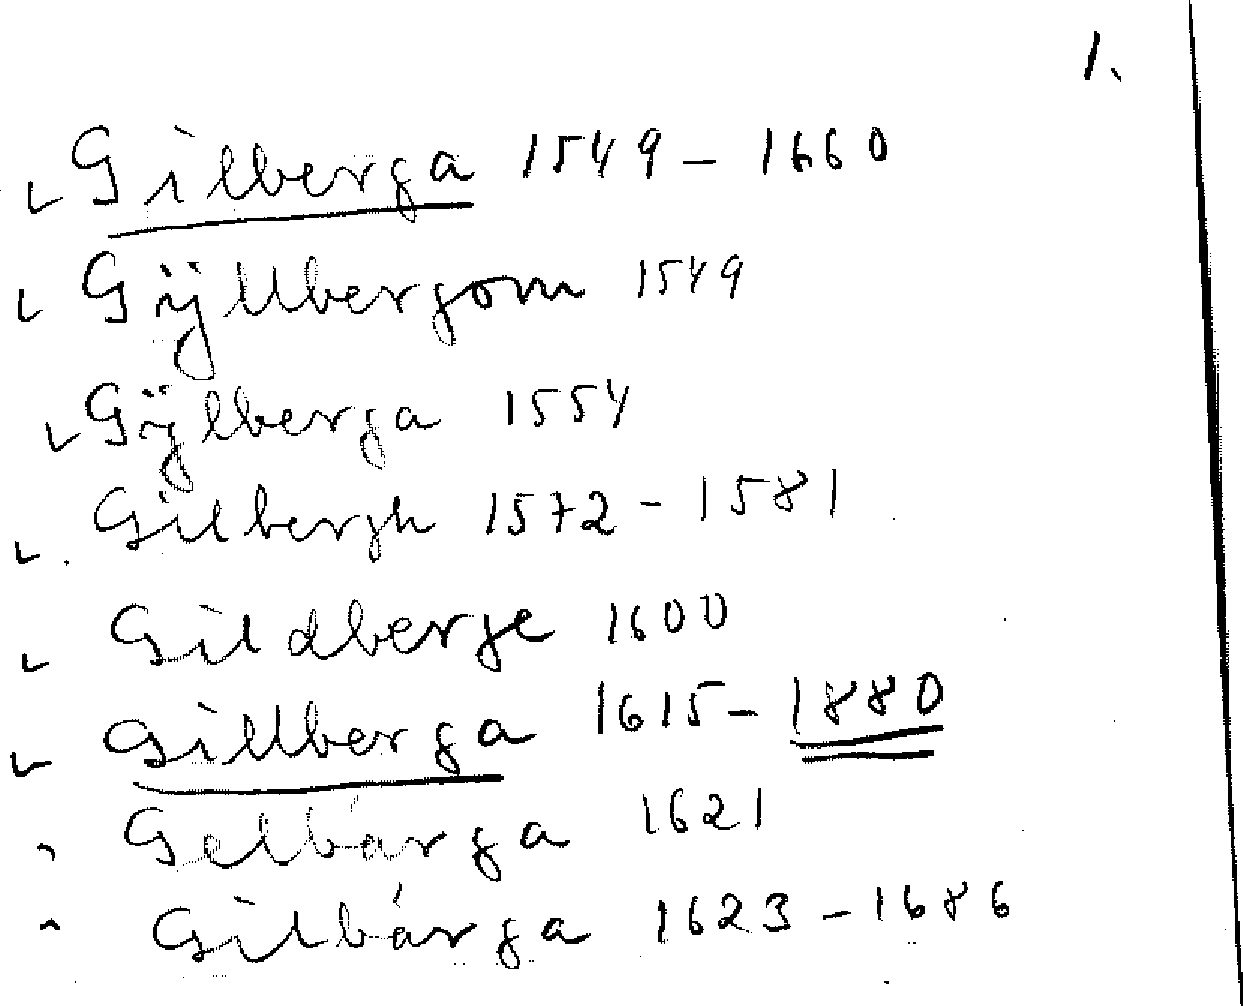 1.
Gilberga 1549 - 1660
Gÿllbergom 1549
Gÿlberga 1554
Gilbergh 1572 - 1581
Gildberge 1600
Gillberga 1615 - 1880
Gelbárga 1621
Gilbárga 1623 - 1686